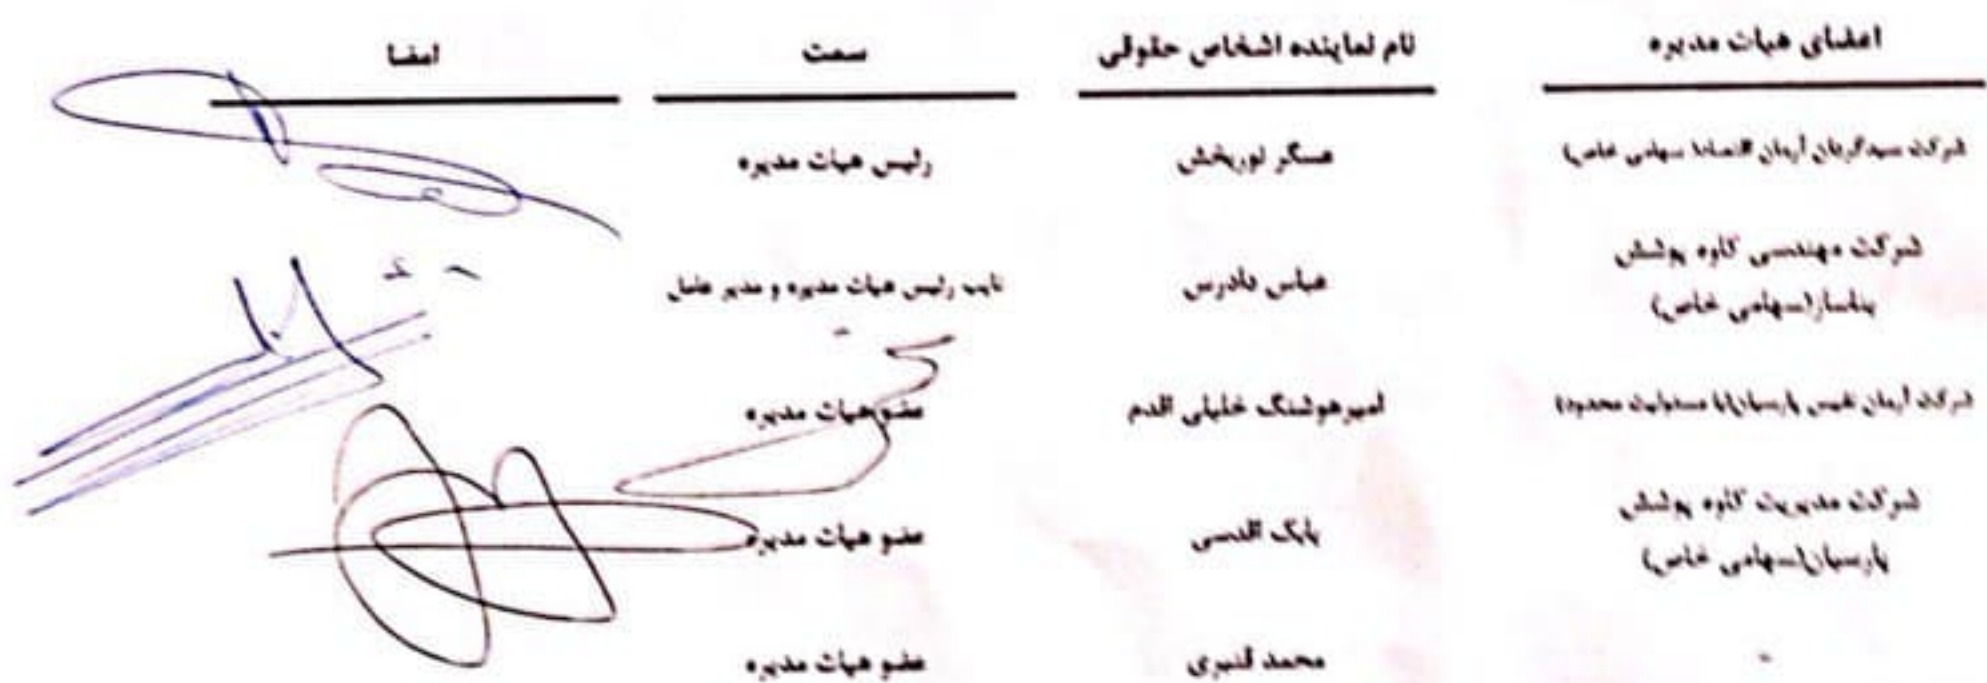 اعضای هیات مدیره نام نماینده اشخاص حقوقی سمت امضا
شرکت سبدگردان آرمان اقتصاد( سهامی خاص) عسگر نوربخش رئیس هیات مدیره
شرکت مهندسی کاوه پوشش
(سهامی خاص) عباس دادرس نایب رئیس هیات مدیره و مدیر عامل
شرکت آرمان نفیس پارسیان(با مسئولیت محدود) امیرهوشنگ خلیلی اقدم عضو هیات مدیره
شرکت مدیریت کاوه پوشش
پارسیان(سهامی خاص) بابک اقدسی عضو هیات مدیره
- محمد قنبری عضو هیات مدیره